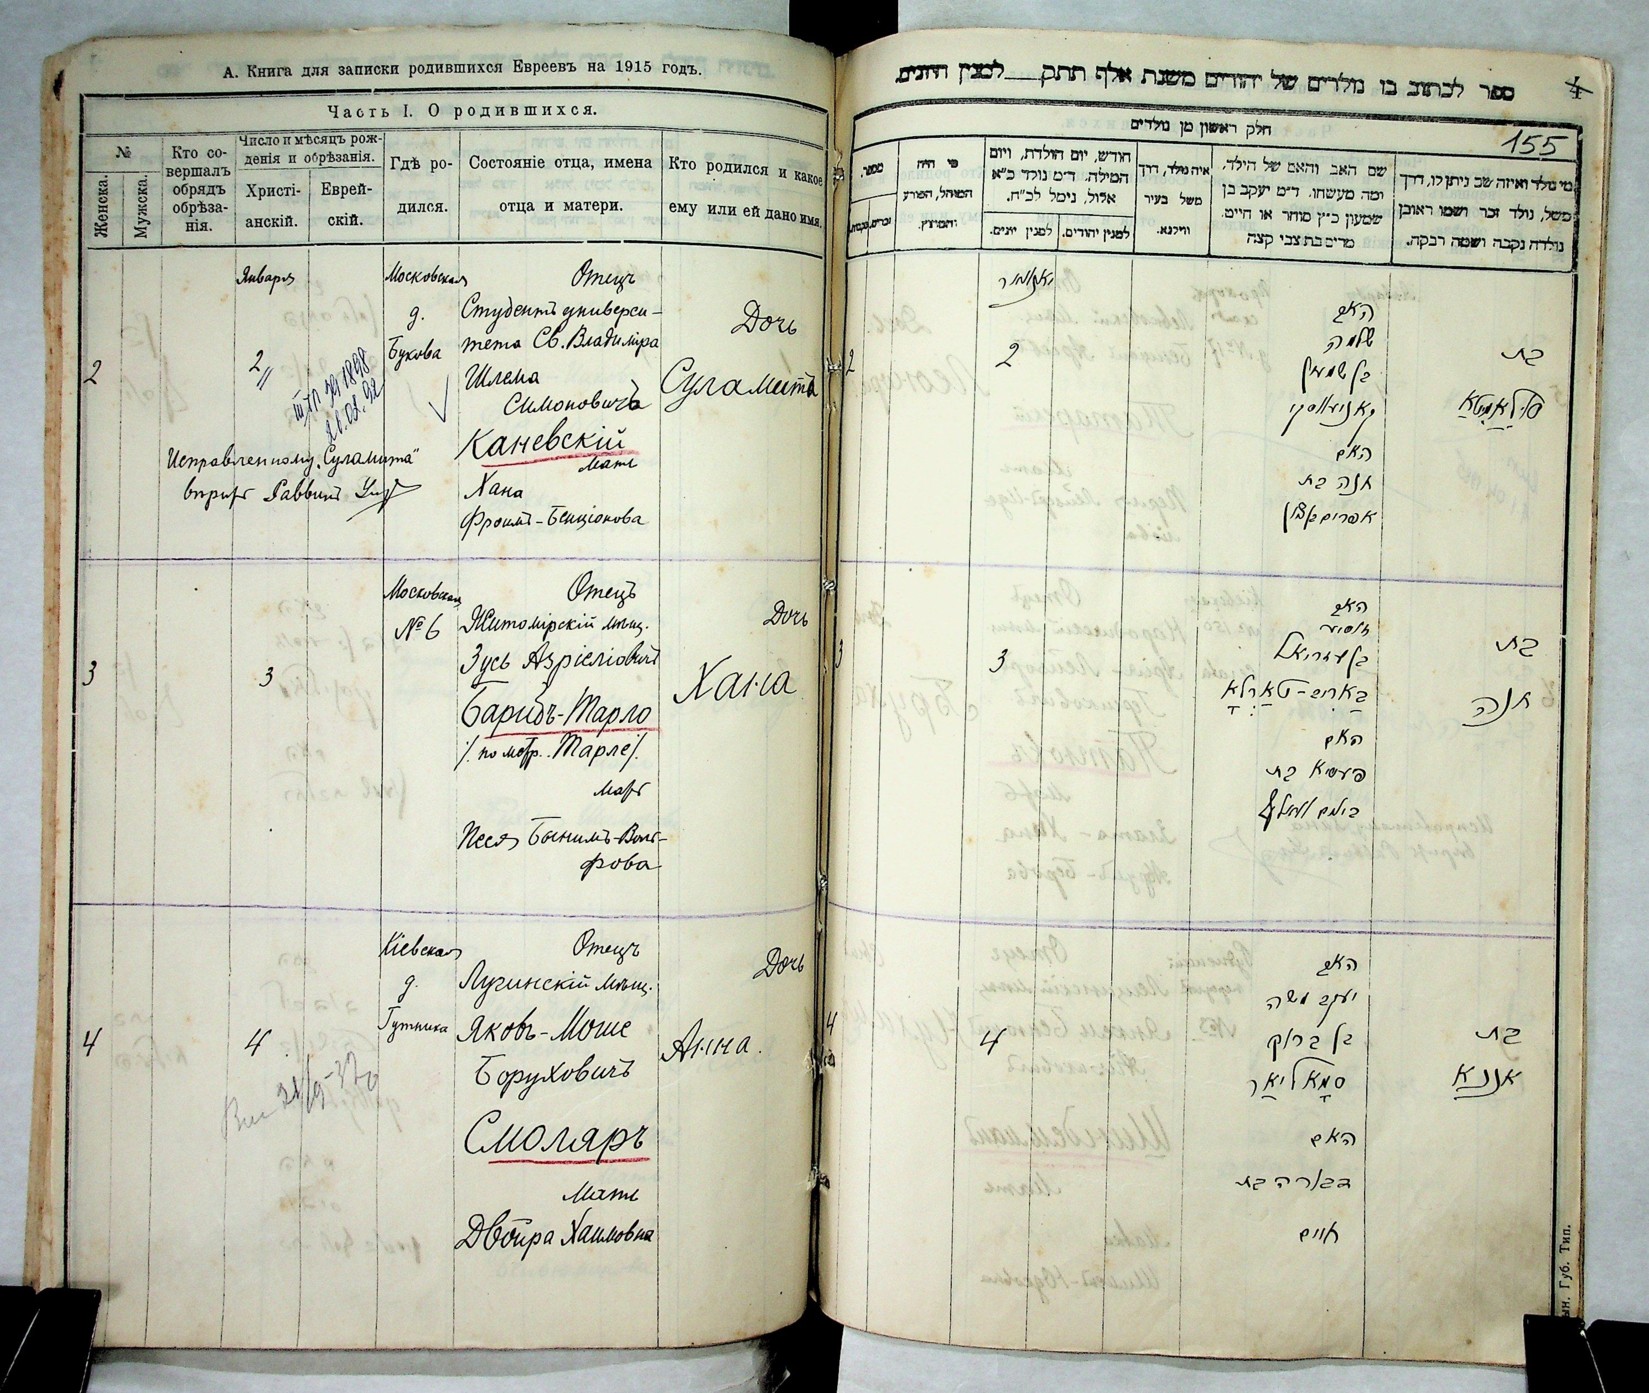 А. Книга для записки родившихся Евреевъ на 1915 годъ.
Часть I. О родившихся.
№
Женска.
Мужска.
Кто со-
вершалъ
обрядъ
обрѣза-
нія.
Число и мѣсяцъ рож-
денія и обрѣзанія.
Христі-
анскій.
Еврей-
скій.
Гдѣ ро-
дился.
Состояніе отца, имена
отца и матери.
Кто родился и какое
ему или ей дано имя.
2
Января
2
Исправленному „Суламита"
вѣрить Раввинъ
Московская
д.
Букова
Отецъ
Студентъ универси-
тета Св. Владиміра
Шлема
Симоновичъ
Каневскій
Мать
Хана
Фроимъ-Бенціонова
Дочь
Суламита
3
3
Московская
№ 6
Отецъ
Житомірскій мѣщ.
Зусь Азріеліовичъ
Баридъ-Тарло
/. по метр. Тарле/.
Мать
Песя Бенимъ-Воль-
фова
Дочь
Хана
4
4
Кіевская
д.
Гутника
Отецъ
Лугинскій мѣщ.
Яковъ-Моше
Боруховичъ
Смоляръ
Мать
Двойра Хаимовна
Дочь
Анна.
ספר לכתוב בו נולדים של יהודים משנת אלף תתק למנין היונים.
4
155
חלק ראשון מן נולדים
מספר.
מי היה
המוהל, הפורע
והמוצץ.
חודש, יום הולדת, ויום
המילה. ד״מ נולד כ״א
אלול, נימל לכ״ח.
למנין יהודים.
למנין יונים.
איה נולד, דרך
משל בעיר
ווילנא.
שם האב והאם של הילד,
ומה מעשהו. ד״מ יעקב בן
שמעון כ״ץ סוחר או חייט.
מרים בת צבי קצה
מי נולד ואיזה שם ניתן לו, דרך
משל, נולד זכר ושמו ראובן
נולדה נקבה ושמה רבקה.
2
יאנואר
2
האב
שלמה
בן שמעון
קאניעווסקי
האם
חנה בת
אפרים בנציון
בת
סולאמיטא
3
3
האב
זוסיא
בן עזריאל
באריד-טארלא
האם
פעסיא בת
בת
חנה
4
4
האב
יעקב משה
בן ברוך
סמאליאר
האם
דבורה בת
חיים
בת
אננא
ын. Губ. Тип.